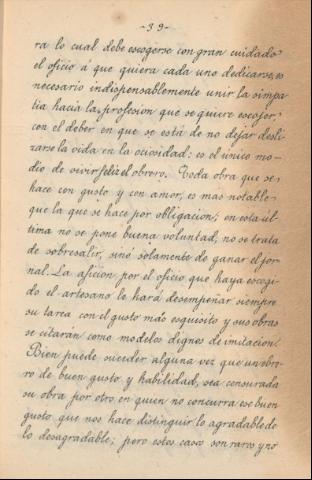 -39-
ra lo cual debe escogerse con gran cuidado
el oficio á que quiera cada uno dedicarse, es
necesario indispensablemente unir la simpa
tia hacia la profesion que se quiere escojer,
con el deber en que se está de no dejar desli
zarse la vida en la ociosidad: es el único me-
dio de vivir feliz el obrero. Toda obra que se
hace con gusto y con amor, es mas notable
que la que se hace por obligacion; en esta úl-
tima no se pone buena voluntad, no se trata
de sobresalir, sino solamente de ganar el jor-
nal. La aficion por el oficio que haya escogi-
do el artesano le hará desempeñar siempre
su tarea con el gusto más esquisito y sus obras
se citarán como modelos dignos de imitacion.
Bien puede suceder alguna vez que un obre-
ro de buen gusto y habilidad, vea censurada
su obra por otro en quien no concurra ese buen
gusto que nos hace distinguir lo agradable de
lo desagradable; pero estos casos son raros y no